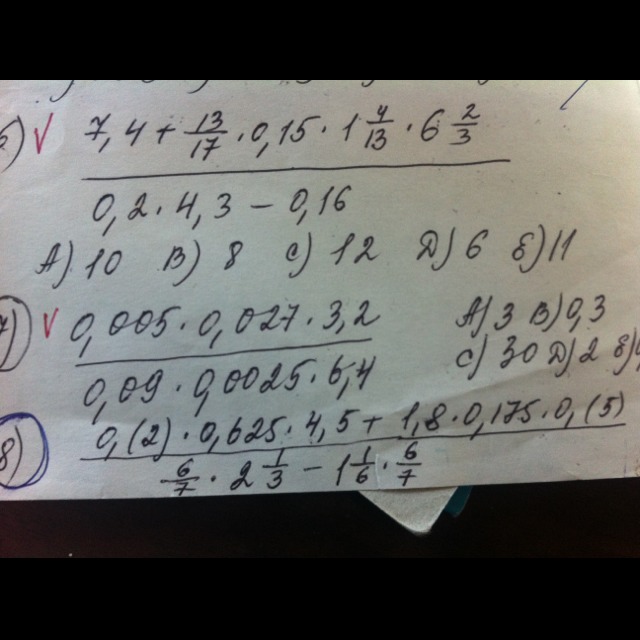 6) V 7,4 + 13/17 · 0,15 · 1 4/13 · 6 2/3
0,2 · 4,3 – 0,16
А) 10 В) 8 С) 12 Д) 6 Е) 11
7) V 0,005 · 0,027 · 3,2 А) 3 В) 0,3
0,09 · 0,0025 · 6,4 С) 30 Д) 2 Е)
8) 0,(2) · 0,625 · 4,5 + 1,8 · 0,175 · 0,(5)
6/7 · 2 1/3 – 1 1/6 · 6/7